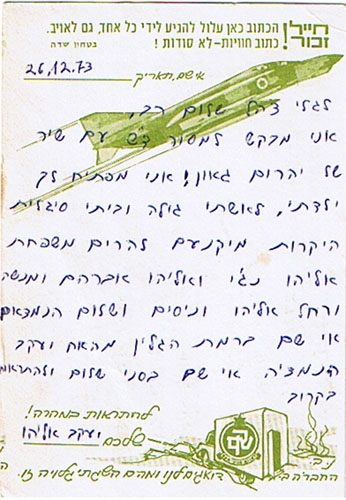 חייל! זכור!
הכתוב כאן עלול להגיע לידי כל אחד, גם לאויב.
כתוב חוויות-לא סודות!
בטחון שדה
אי שם, תאריך 26.12.73
לגלי צה"ל שלום רב,
אני מבקש למסור ד"ש עם שיר
של יהרום גאון! אני מפתיח לך
ילדתי, לאשתי גילה וביתי סיגלית
היקרות מיקנעם להרים משפחת
אליהו נג'י ואליהו אברהם ומנשה
ורחל אליהו וניסים ושלום הנמצאים
אי שם ברמת הגולן מהאח יעקב
הנמצא אי שם בסיני שלום ולהתראות
בקרוב
להתראות במהרה!
שלכם יעקב אליהו
נ.ב.
החברה ב
דואגים לנו ומהם השגתי גלויה זו.